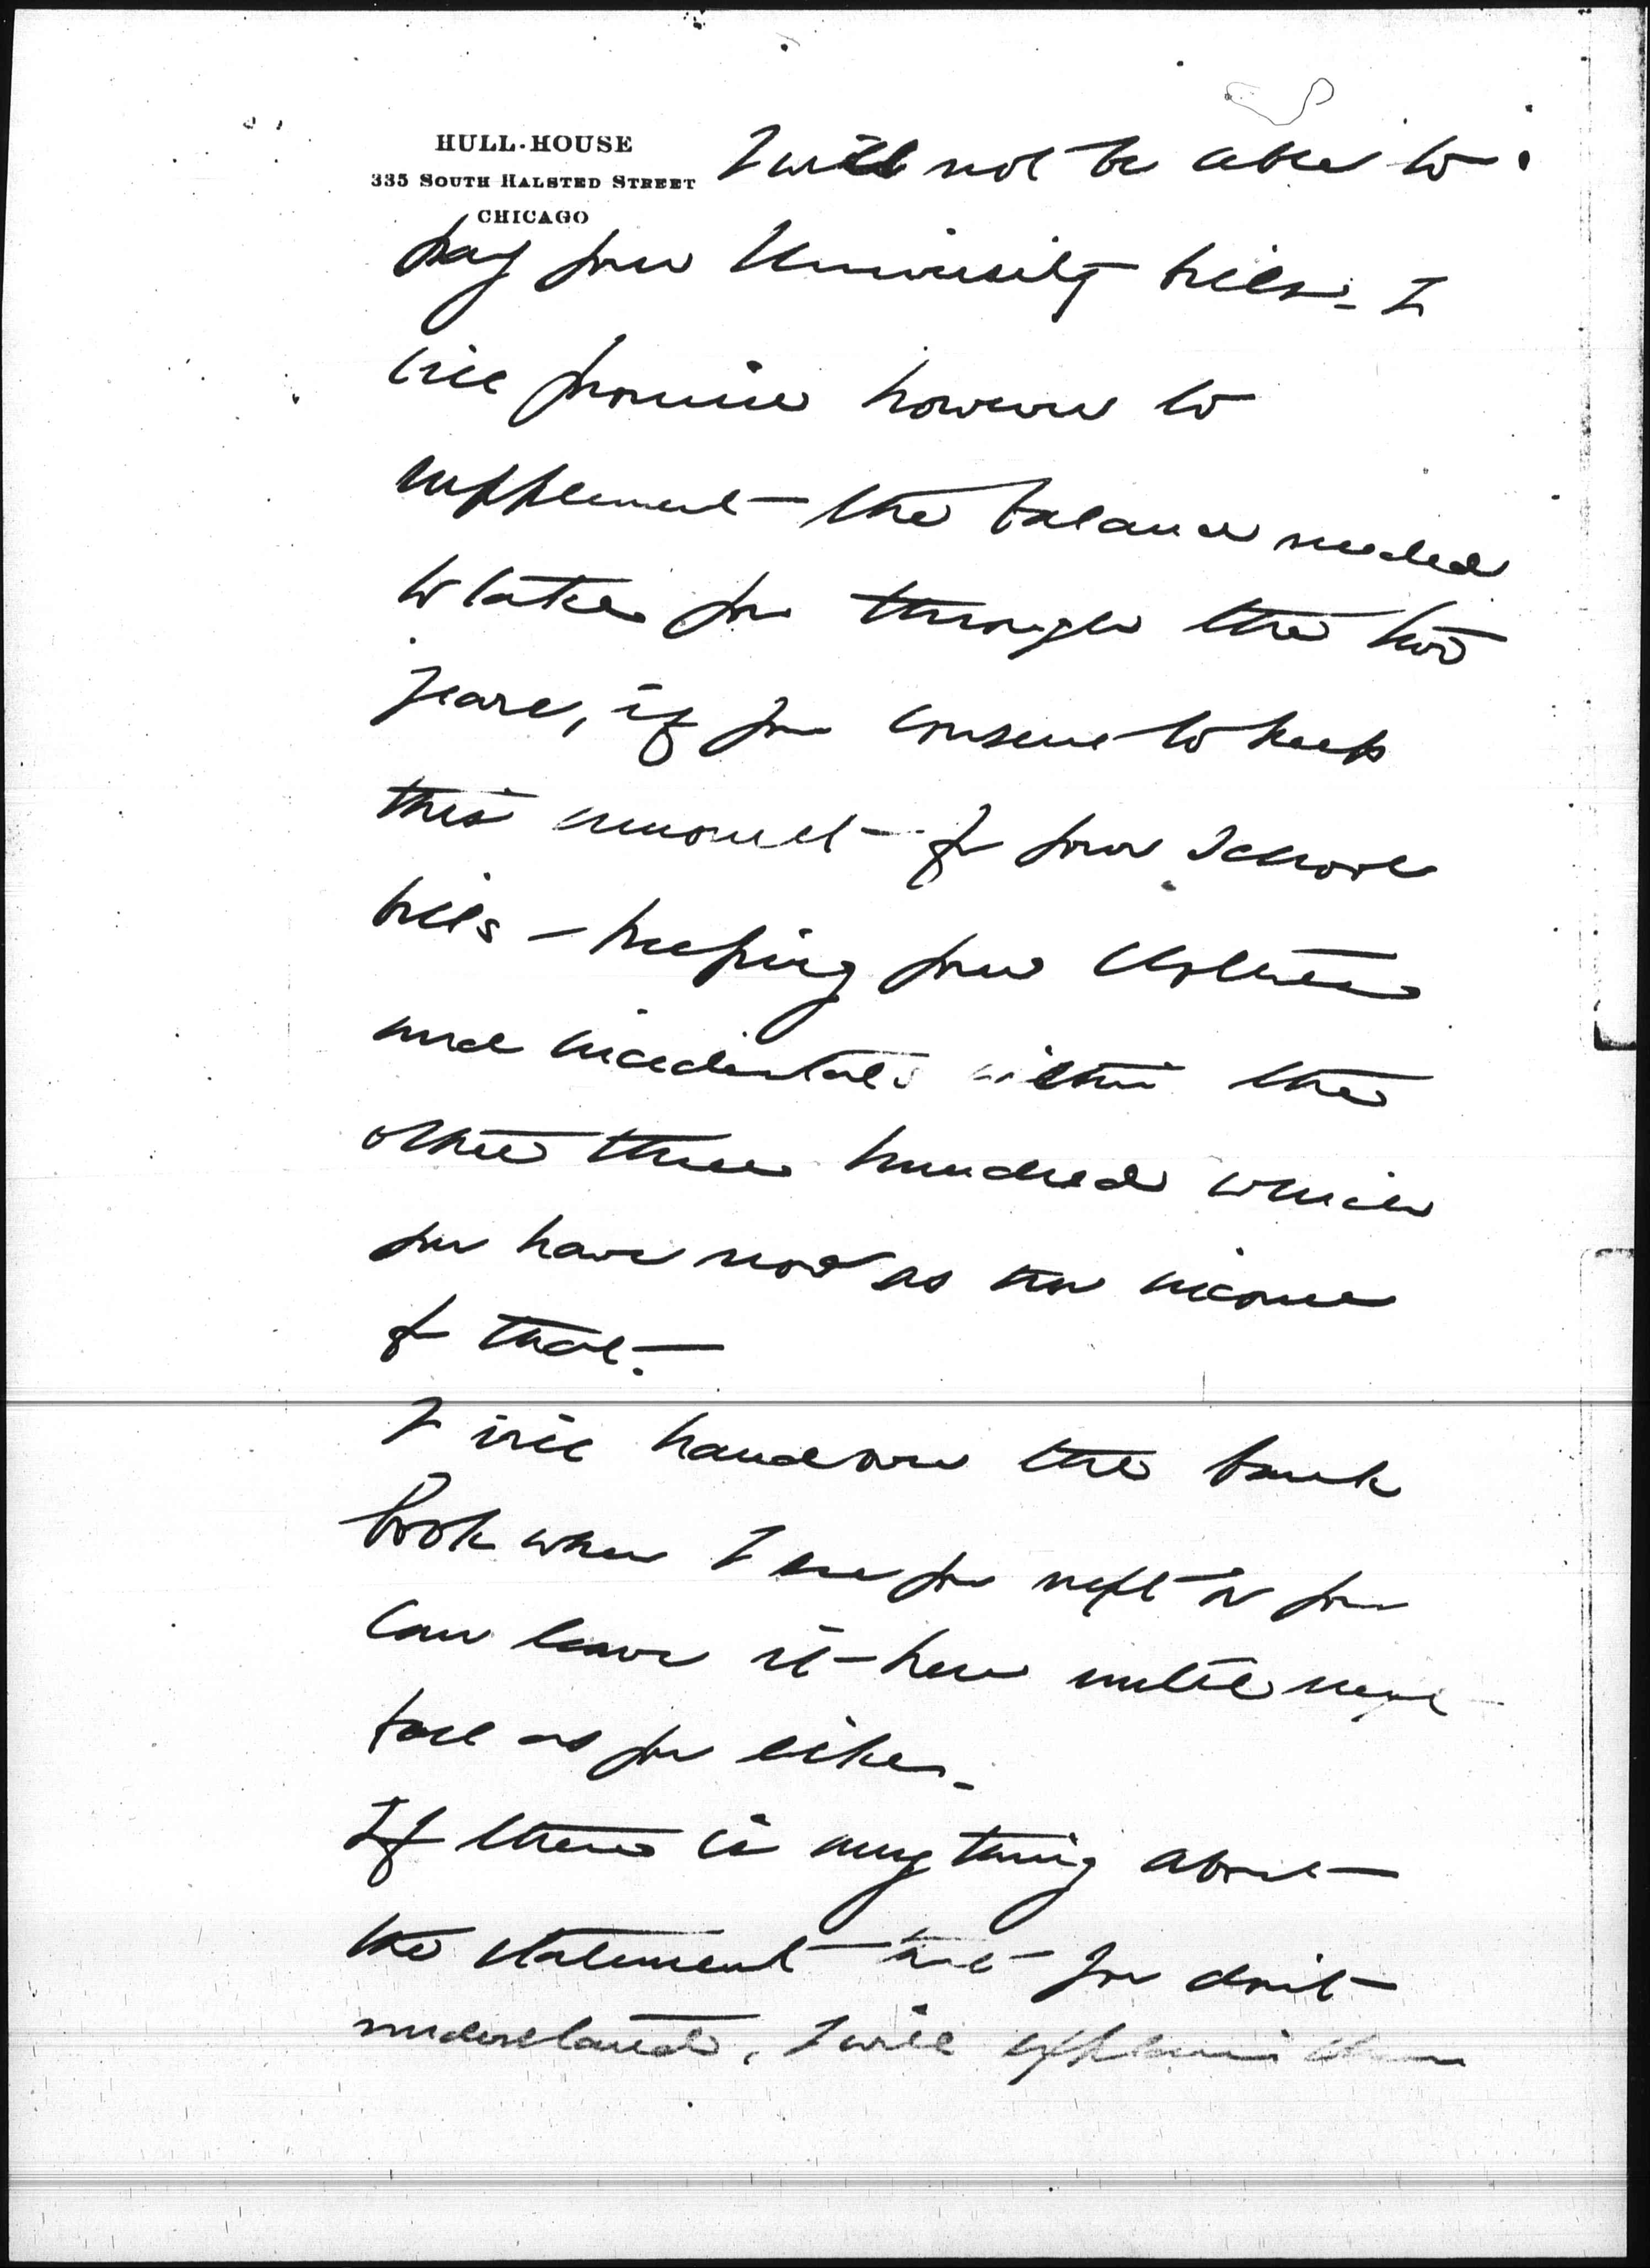 HULL-HOUSE
335 SOUTH HALSTED STREET
CHICAGO
I will not be able to
pay your University bills - I
will promise however to
supplement the balance needed
to take you through the two
years, if you to keep
this amount for your school
bills - keeping your clothes
and incidentals within the
other three hundred which
you have now as the income
of that.
I will hand over the bank
book when I see you next or you
can leave it here until next
fall as you like -
If there is anything about
the statement that you don't
understand, I will explain